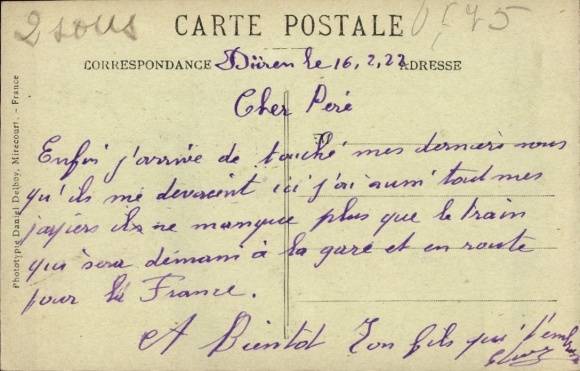 2 sous
CARTE POSTALE
0,75
CORRESPONDANCE Düren le 16.2.22 ADRESSE
Cher Peré
Enfin j'arrive de touché mes derniers sous
qu'ils me devaient ici j'ai aussi tout mes
papiers il ne manque plus que le train
qui sera démain à la gare et en route
pour la France.
A Bientot Ton fils qui t'embrasse
Phototypie Daniel Delboy, Mirecourt. - France